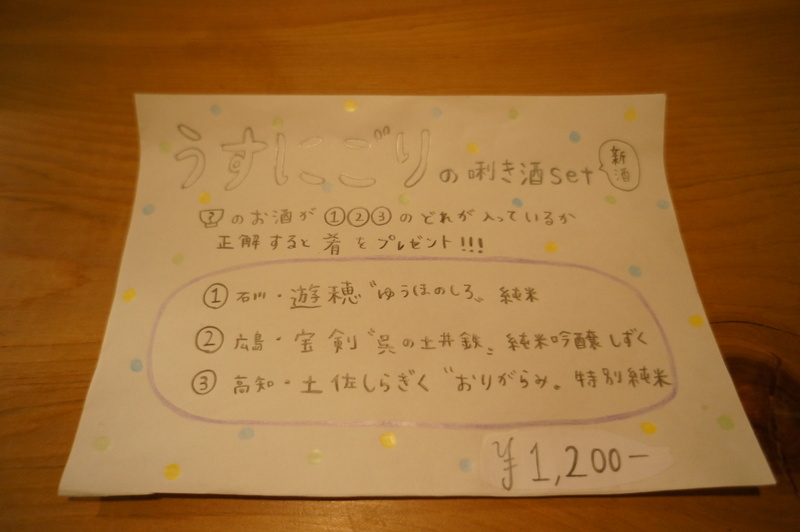 うすにごりの唎き酒set 新酒
?のお酒が①②③のどれが入っているか
正解すると肴をプレゼント!!!
① 石川・遊穂〝ゆうほのしろ〟純米
② 広島・宝剣〝呉の土井鉄〟純米吟醸しずく
③ 高知・土佐しらぎく〝おりがらみ〟特別純米
¥1,200-